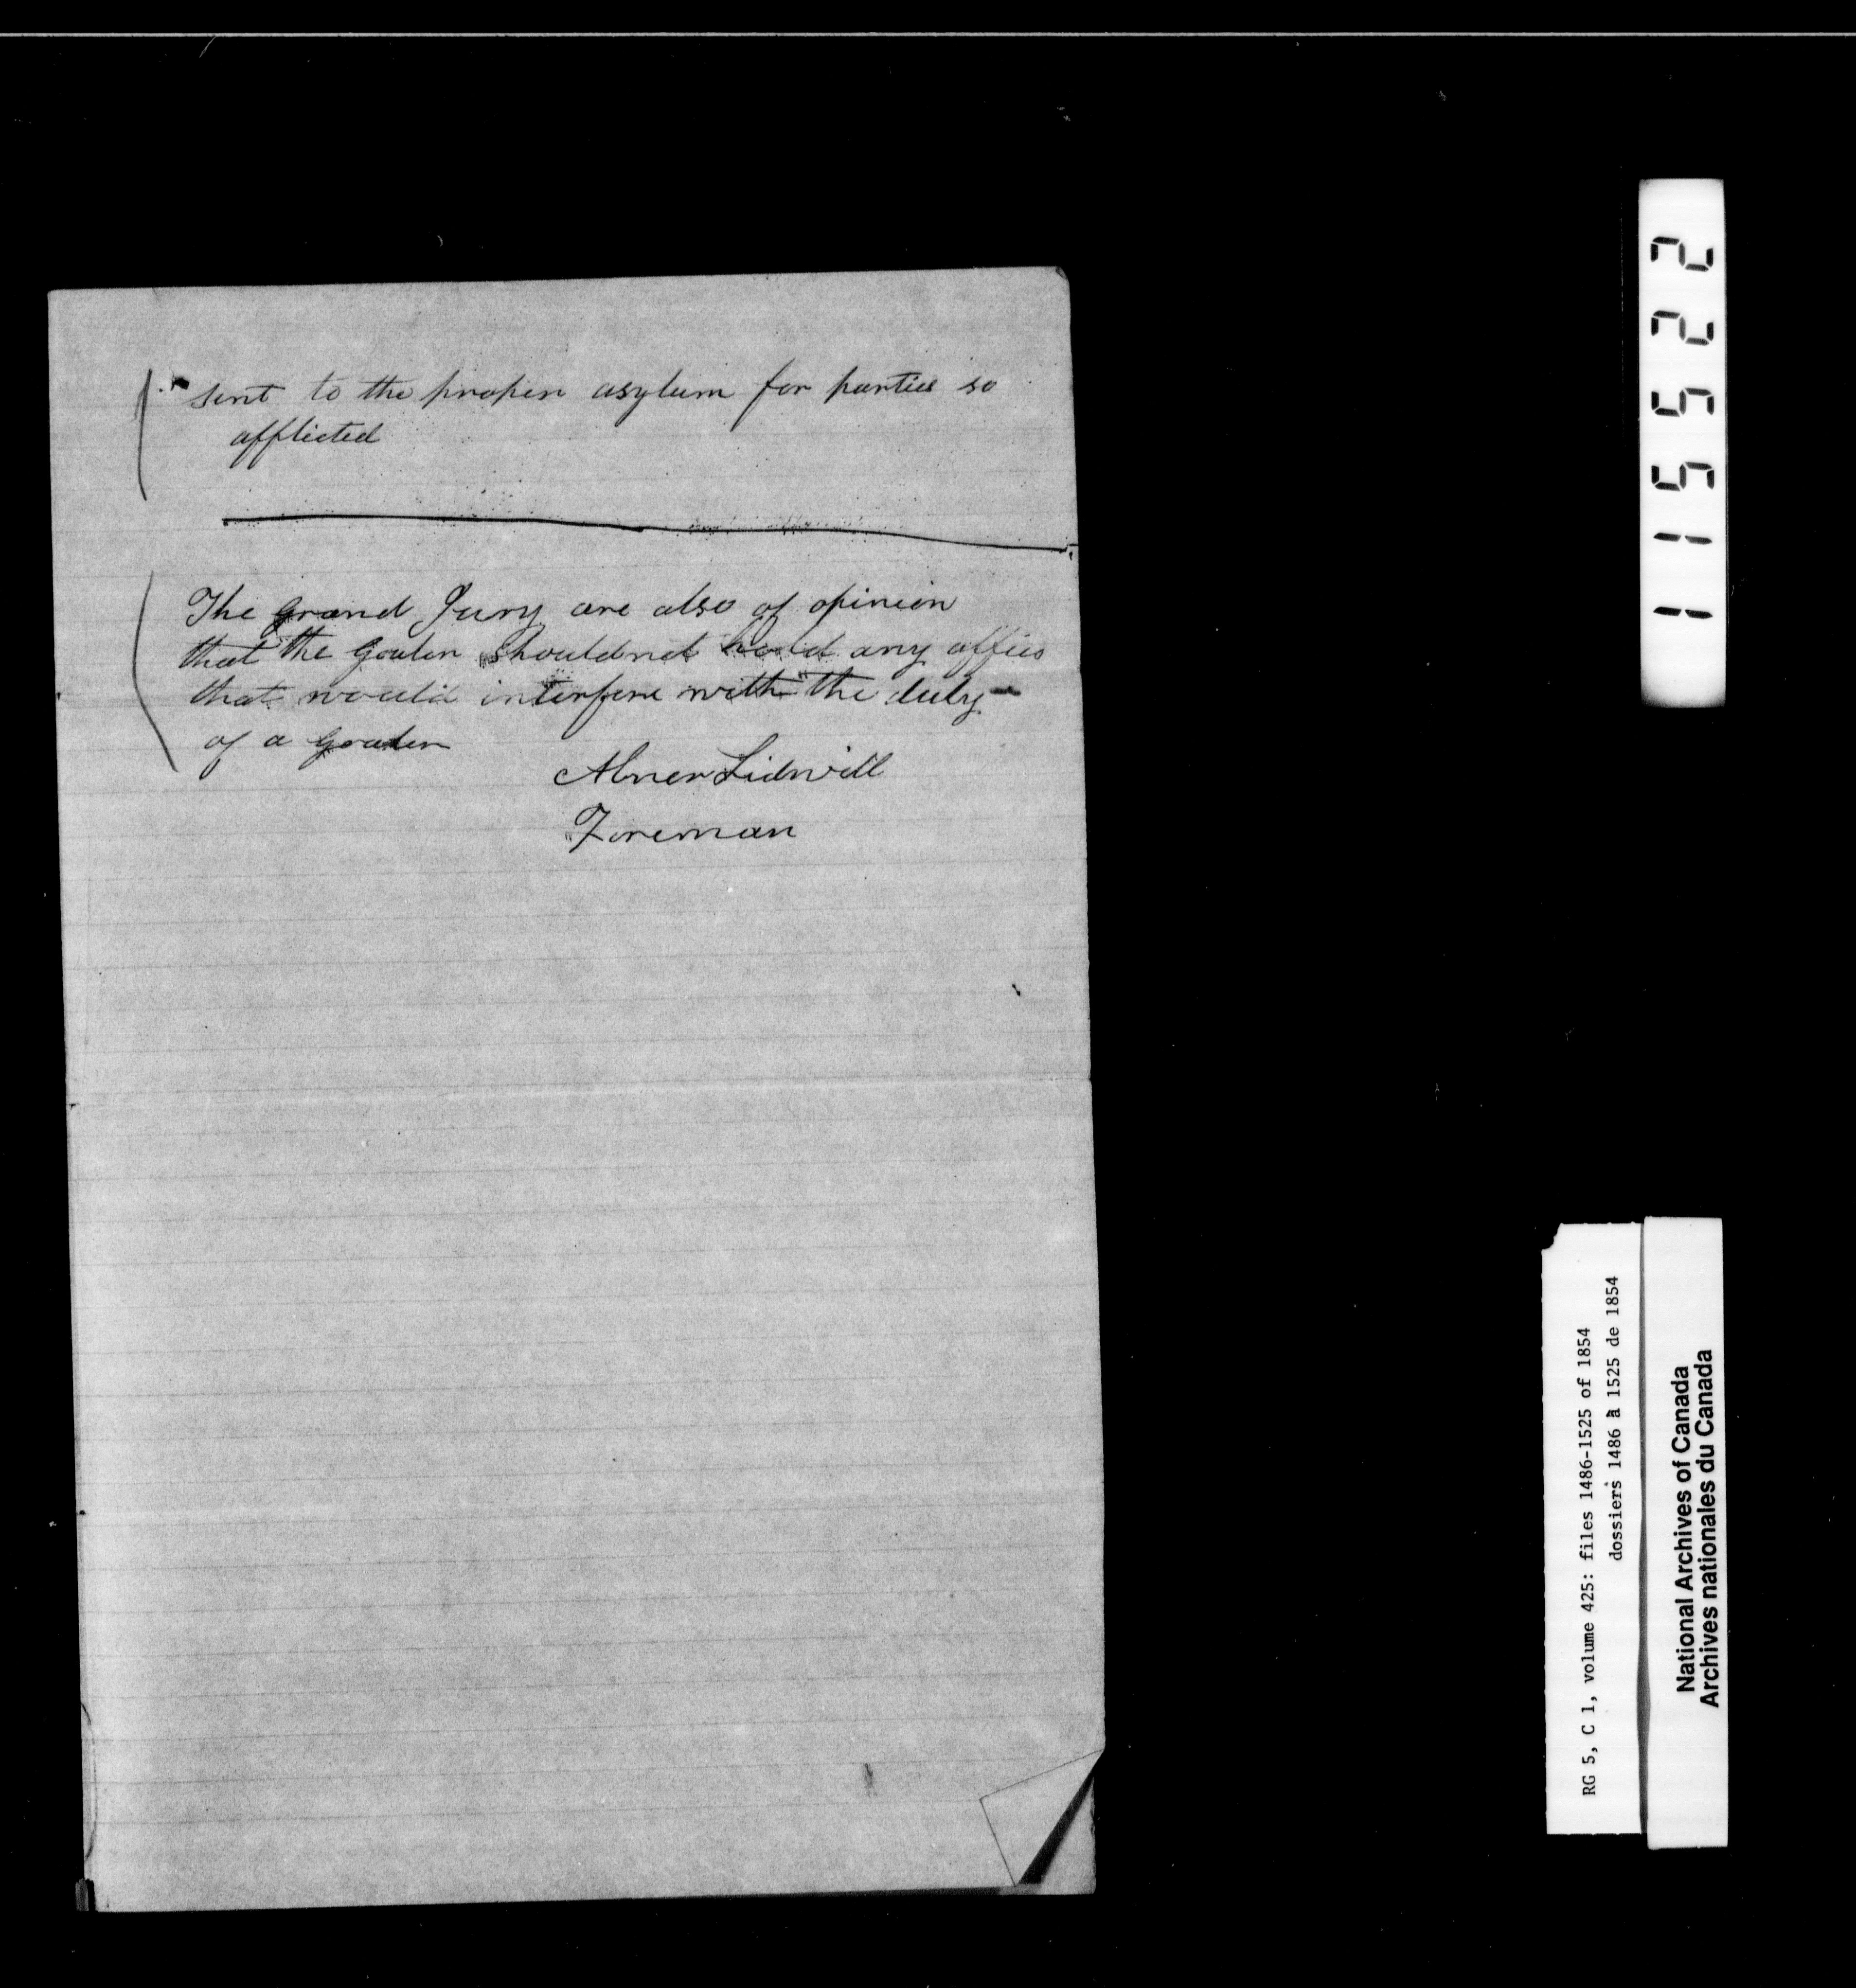 sent to the proper asylum for parties so
afflicted
The Grand Jury are also of opinion
that the Goaler should not hold any office
that would interfere with the duty
of a Goaler
Abner Lidwill
Foreman
115522
RG 5, C 1, volume 425: files 1486-1525 of 1854
dossiers 1486 à 1525 de 1854
National Archives of Canada
Archives nationales du Canada